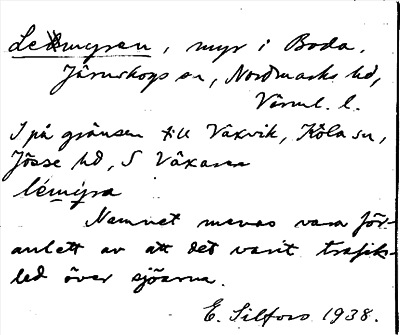 Ledmyren, myr i Boda,
Järnskogs sn, Nordmarks hd,
Värml. l.
I på gränsen till Växvik, Köla sn,
Jösse hd, S Växaren
lémy̆ra
Namnet menas vara för-
anlett av att det varit trafik-
led över sjöarna.
E. Silfors 1938.